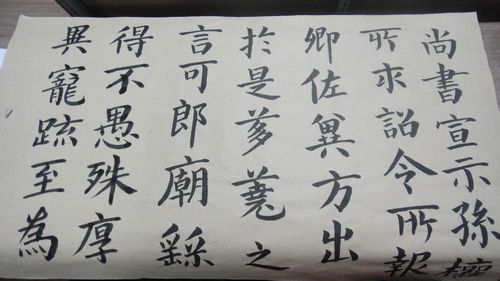 尚書宣示孫權
所求詔令所報
卿佐冀方出
於是芻蕘之
言可郎廟繇
得不愚殊厚
異寵疏至為